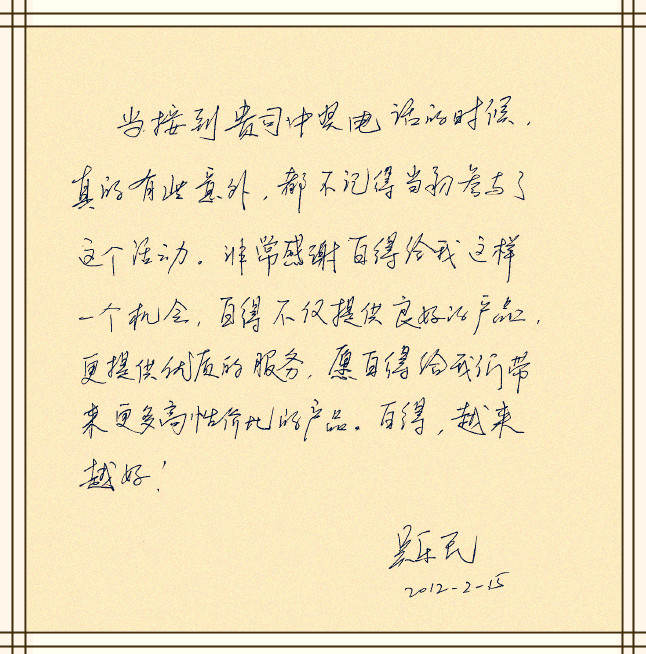 当接到贵司中奖电话的时候，
真的有些意外，都不记得当初参与了
这个活动。非常感谢百得给我这样
一个机会，百得不仅提供良好的产品，
更提供优质的服务，愿百得给我们带
来更多高性价比的产品。百得，越来
越好！
吴乐民
2012-2-15